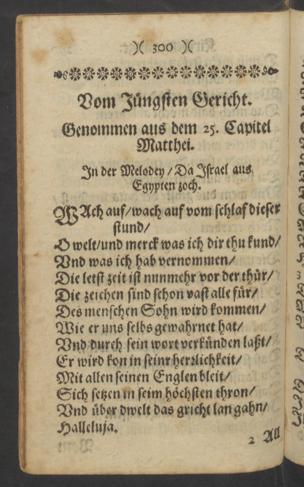 )( 300 )(
Vom Jüngsten Gericht.
Genommen aus dem 25. Capitel
Matthei.
In der Melodey / Da Israel aus
Egypten zoch.
WAch auf / wach auf vom schlaf dieser
stund /
O welt / und merck was ich dir thu kund /
Vnd was ich hab vernommen /
Die letst zeit ist nunmehr vor der thür /
Die zeichen sind schon vast alle für /
Des menschen Sohn wird kommen /
Wie er uns selbs gewahrnet hat /
Vnd durch sein wort verkünden laßt /
Er wird kon in seinr herzlichkeit /
Mit allen seinen Englen bleit /
Sich setzen in seim höchsten thron /
Vnd über dwelt das gricht lan gahn /
Halleluja.
2 All